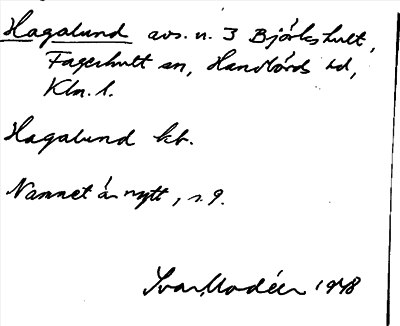 Hagalund avs. n. 3 Björkshult,
Fagerhult sn, Handbörds hd,
Klm. l.
Hagalund kt.
Namnet är nytt, s. 9.
Ivar Modéer 1948